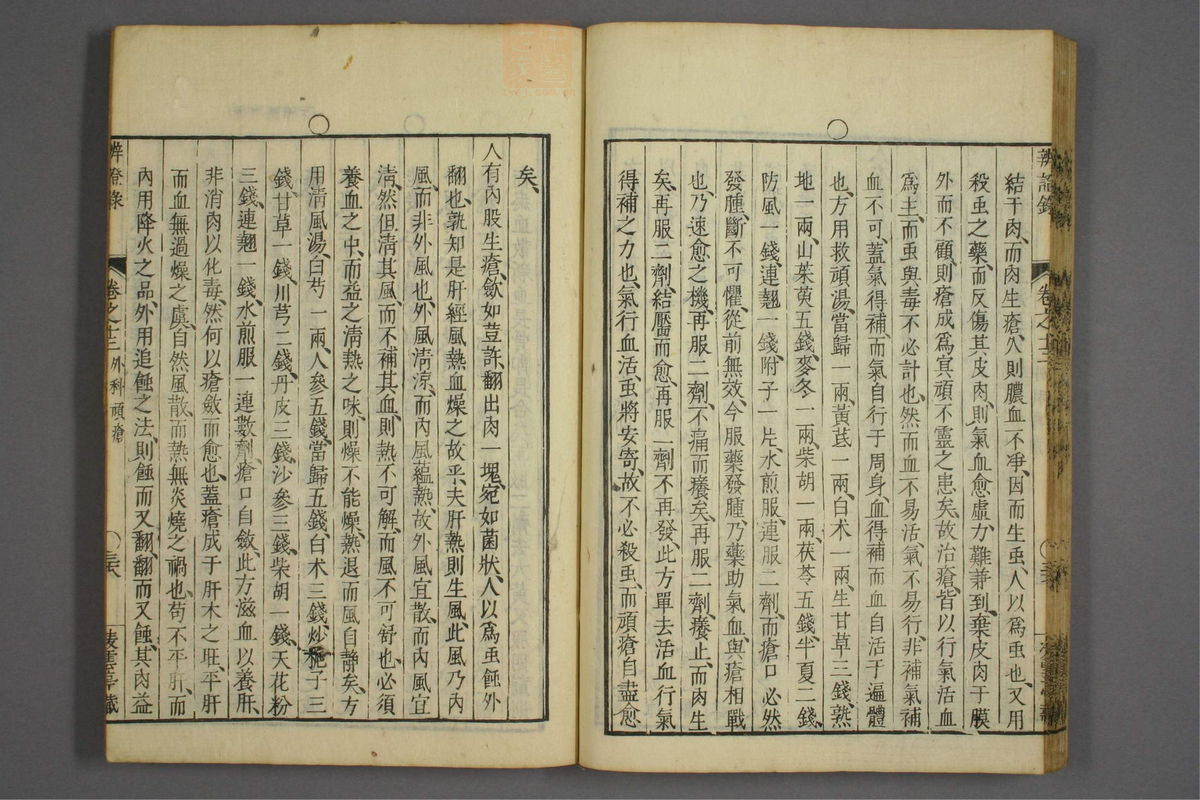 結于肉而肉生瘡穴則膿血不凈因而生虫人以為虫也又用
殺虫之藥而反傷其皮肉則氣血愈虛力難兼到棄皮肉于膜
外而不顧則瘡成為冥頑不靈之患矣故治瘡皆以行氣活血
為主而虫與毒不必計也然而血不易活氣不易行非補氣補
血不可蓋氣得補而氣自行于周身血得補而血自活于遍體
也方用救頑湯當歸一兩黃芪一兩白术一兩生甘草三錢熟
地一兩山茱萸五錢麥冬一兩柴胡一兩茯苓五錢半夏二錢
防風一錢連翹一錢附子一片水煎服連服二劑而瘡口必然
發腫斷不可懼從前無效今服藥發腫乃藥助氣血與瘡相戰
也乃速愈之機再服二劑不痛而癢矣再服二劑癢止而肉生
矣再服二劑結靨而愈再服一劑不再發此方單去活血行氣
得補之力也氣行血活虫將安寄故不必殺虫而頑瘡自盡愈
矣
人有內股生瘡歛如荳許翻出肉一塊宛如菌狀人以為虫蝕外
翻也孰知是肝經風熱血燥之故乎夫肝熱則生風此風乃內
風而非外風也外風清涼而內風蘊熱故外風宜散而內風宜
清然但清其風而不補其血則熱不可解而風不可舒也必須
養血之中而益之清熱之味則燥不能燥熱退而風自靜矣方
用清風湯白芍一兩人參五錢當歸五錢白术三錢炒梔子三
錢甘草一錢川芎二錢丹皮三錢沙參三錢柴胡一錢天花粉
三錢連翹一錢水煎服一連數劑瘡口自歛此方滋血以養肝
非消肉以化毒然何以瘡歛而愈也蓋瘡成于肝木之旺平肝
而血無過燥之虞自然風散而熱無炎燒之禍也苟不平肝而
內用降火之品外用追蝕之法則蝕而又翻翻而又蝕其肉益
辨證錄 卷之十三 外科頑瘡